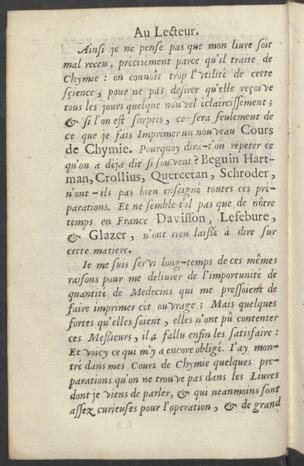 Au Lecteur.
Ainsi je ne pense pas que mon livre soit
mal receu, précisement parce qu'il traite de
Chymie : on connoît trop l'vtilité de cette
science; pour ne pas desirer qu'elle reçoive
tous les jours quelque nouvel éclaircissement;
& si l'on est surpris, ce sera seulement de
ce que je fais Imprimer un nouveau Cours
de Chymie. Pourquoy dira-t'on repeter ce
qu'on a déja dit si souvent? Beguin Hart-
man, Crollius, Quercetan, Schroder,
n'ont-ils pas bien enseigné toutes ces pré-
parations. Et ne semble-t'il pas que de nôtre
temps en France Davisson, Lefebure,
& Glazer, n'ont rien laissé à dire sur
cette matiere.
Je me suis servi long-temps de ces mêmes
raisons pour me délivrer de l'importunité de
quantité de Medecins qui me pressoient de
faire imprimer cét ouvrage; Mais quelques
fortes qu'elles soient, elles n'ont pû contenter
ces Messieurs, il a fallu enfin les satisfaire :
Et voicy ce qui m'y a encore obligé. I'ay mon-
tré dans mes Cours de Chymie quelques pre-
parations qu'on ne trouve pas dans les Livres
dont je viens de parler, & qui neanmoins sont
assez curieuses pour l'operation, & de grand